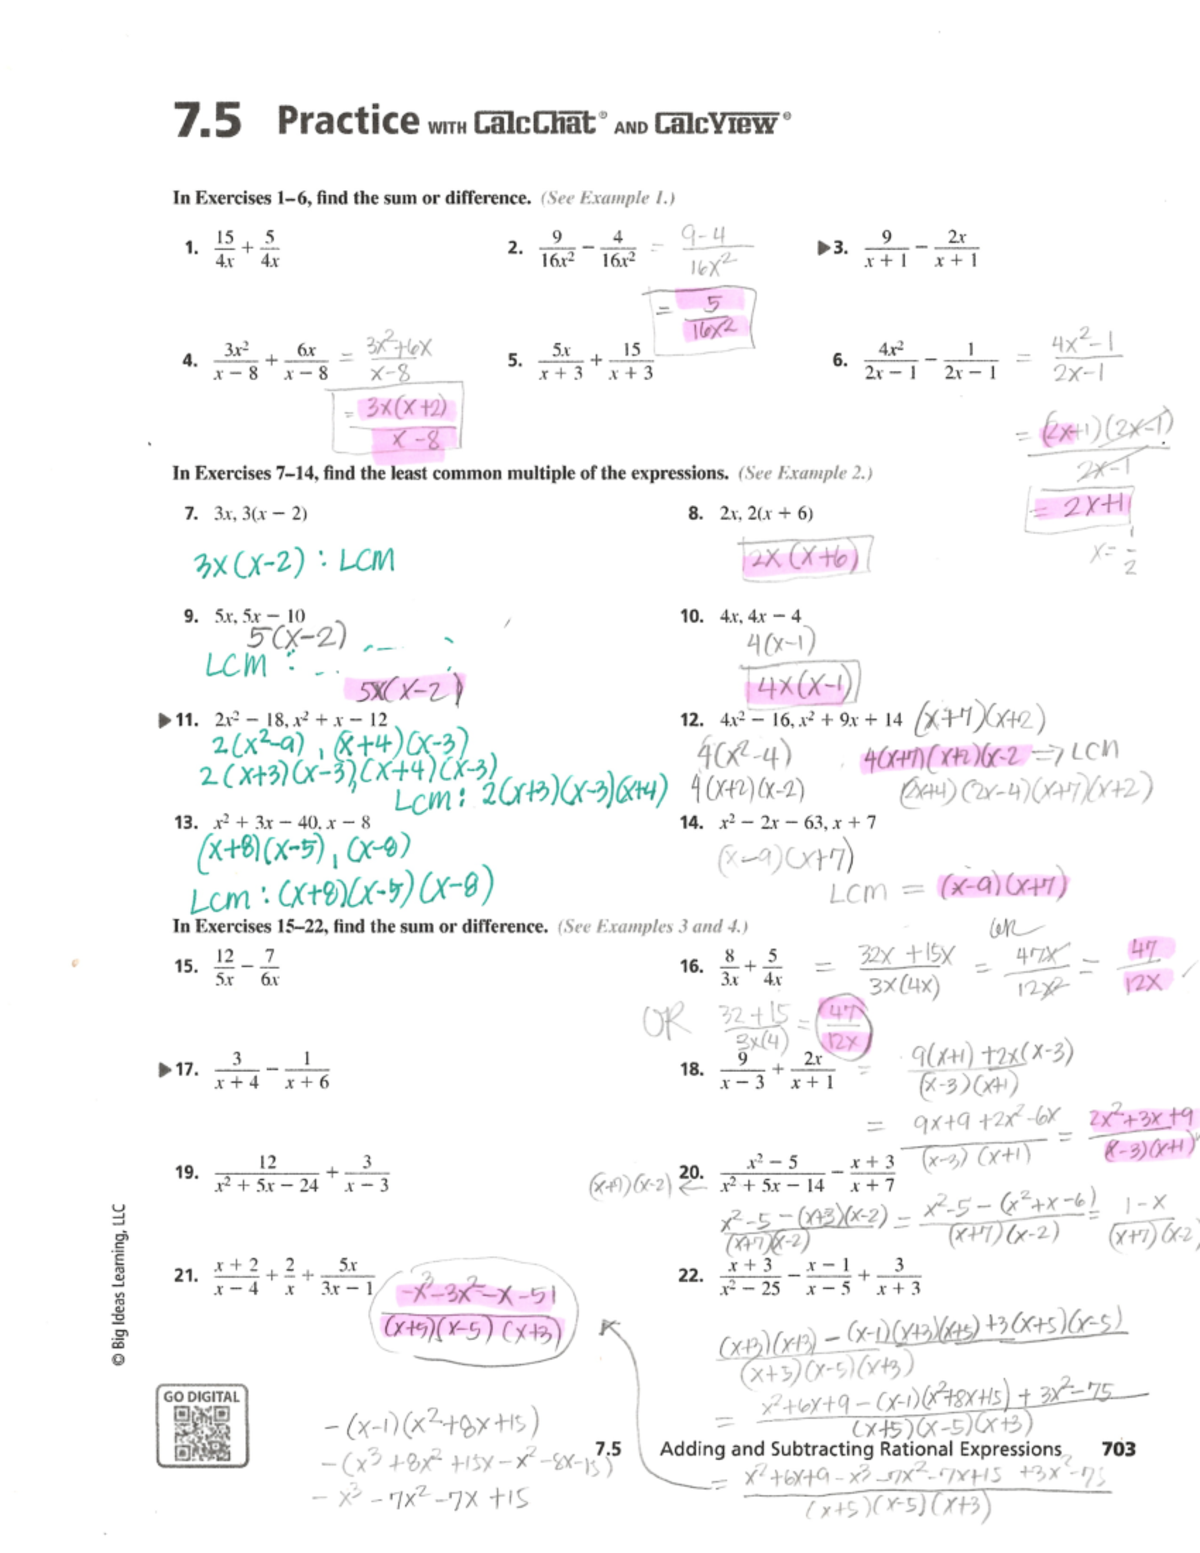 7.5 Practice WITH CalcChat® AND CalcView®
In Exercises 1–6, find the sum or difference. (See Example 1.)
1. 15/4x + 5/4x
2. 9/16x² − 4/16x² = (9-4)/16x²
= 5/16x²
▶3. 9/(x + 1) − 2x/(x + 1)
4. 3x²/(x − 8) + 6x/(x − 8) = (3x²+6x)/(x-8)
= 3x(x+2)/(x-8)
5. 5x/(x + 3) + 15/(x + 3)
6. 4x²/(2x − 1) − 1/(2x − 1) = (4x²-1)/(2x-1)
= (2x+1)(2x-1)/(2x-1)
= 2x+1
x = 1/2
In Exercises 7–14, find the least common multiple of the expressions. (See Example 2.)
7. 3x, 3(x − 2)
3x(x-2) : LCM
8. 2x, 2(x + 6)
2x(x+6)
9. 5x, 5x − 10
5(x-2)
LCM :
5x(x-2)
10. 4x, 4x − 4
4(x-1)
4x(x-1)
▶11. 2x² − 18, x² + x − 12
2(x²-9), (x+4)(x-3)
2(x+3)(x-3),(x+4)(x-3)
LCM: 2(x+3)(x-3)(x+4)
12. 4x² − 16, x² + 9x + 14 (x+7)(x+2)
4(x²-4) 4(x+7)(x+2)(x-2 ⇒ LCM
4(x+2)(x-2) (2x+4)(2x-4)(x+7)(x+2)
13. x² + 3x − 40, x − 8
(x+8)(x-5), (x-8)
LCM : (x+8)(x-5)(x-8)
14. x² − 2x − 63, x + 7
(x-9)(x+7)
LCM = (x-9)(x+7)
In Exercises 15–22, find the sum or difference. (See Examples 3 and 4.)
15. 12/5x − 7/6x
16. 8/3x + 5/4x = (32x+15x)/3x(4x) = 47x/12x² = 47/12x
OR (32+15)/3x(4) = 47/12x
▶17. 3/(x + 4) − 1/(x + 6)
18. 9/(x − 3) + 2x/(x + 1) = (9(x+1)+2x(x-3))/(x-3)(x+1)
= (9x+9+2x²-6x)/(x-3)(x+1) = (2x²+3x+9)/(x-3)(x+1)
19. 12/(x² + 5x − 24) + 3/(x − 3)
(x+7)(x-2) ← 20. (x² − 5)/(x² + 5x − 14) − (x + 3)/(x + 7)
(x²-5-(x+3)(x-2))/(x+7)(x-2) = (x²-5-(x²+x-6))/(x+7)(x-2) = (1-x)/(x+7)(x-2)
21. (x + 2)/(x − 4) + 2/x + 5x/(3x − 1)
(-x³-3x²-x-51)/(x+5)(x-5)(x+3)
22. (x + 3)/(x² − 25) − (x − 1)/(x − 5) + 3/(x + 3)
((x+3)(x+3)-(x-1)(x+3)(x+5)+3(x+5)(x-5))/(x+5)(x-5)(x+3)
= (x²+6x+9-(x-1)(x²+8x+15)+3x²-75)/(x+5)(x-5)(x+3)
= (x²+6x+9-x³-7x²-7x+15+3x²-75)/(x+5)(x-5)(x+3)
-(x-1)(x²+8x+15)
-(x³+8x²+15x-x²-8x-15)
-x³-7x²-7x+15
© Big Ideas Learning, LLC
GO DIGITAL
7.5 Adding and Subtracting Rational Expressions 703